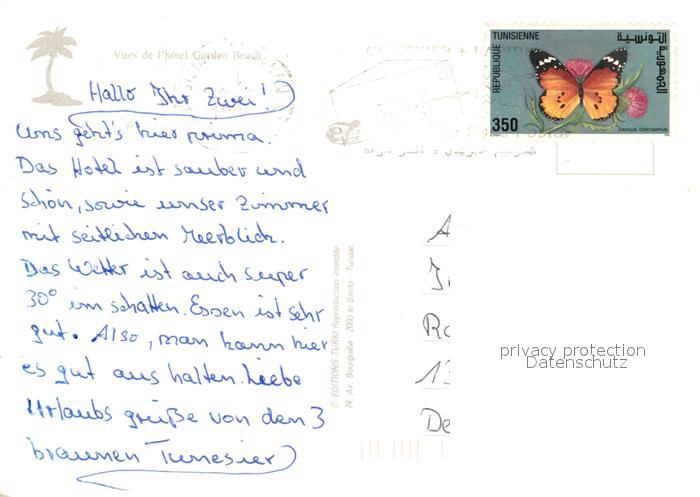 Vues de l'hôtel Garden Beach
Hallo Ihr Zwei!
uns geht's hier prima.
Das Hotel ist sauber und
schön, sowie unser Zimmer
mit seitlichen Meerblick.
Das Wetter ist auch super
30° im schatten. Essen ist sehr
gut. Also, man kann hier
es gut aus halten. Liebe
Urlaubs grüße von den 3
braunen Tunesier
© EDITIONS TURKI Reproduction interdite
74, Av. Bourguiba 2000 le Bardo - Tunisie.
REPUBLIQUE TUNISIENNE
الجمهورية التونسية
350
DANAUS CHRYSIPPUS
A
J
Ro
13
De
privacy protection
Datenschutz